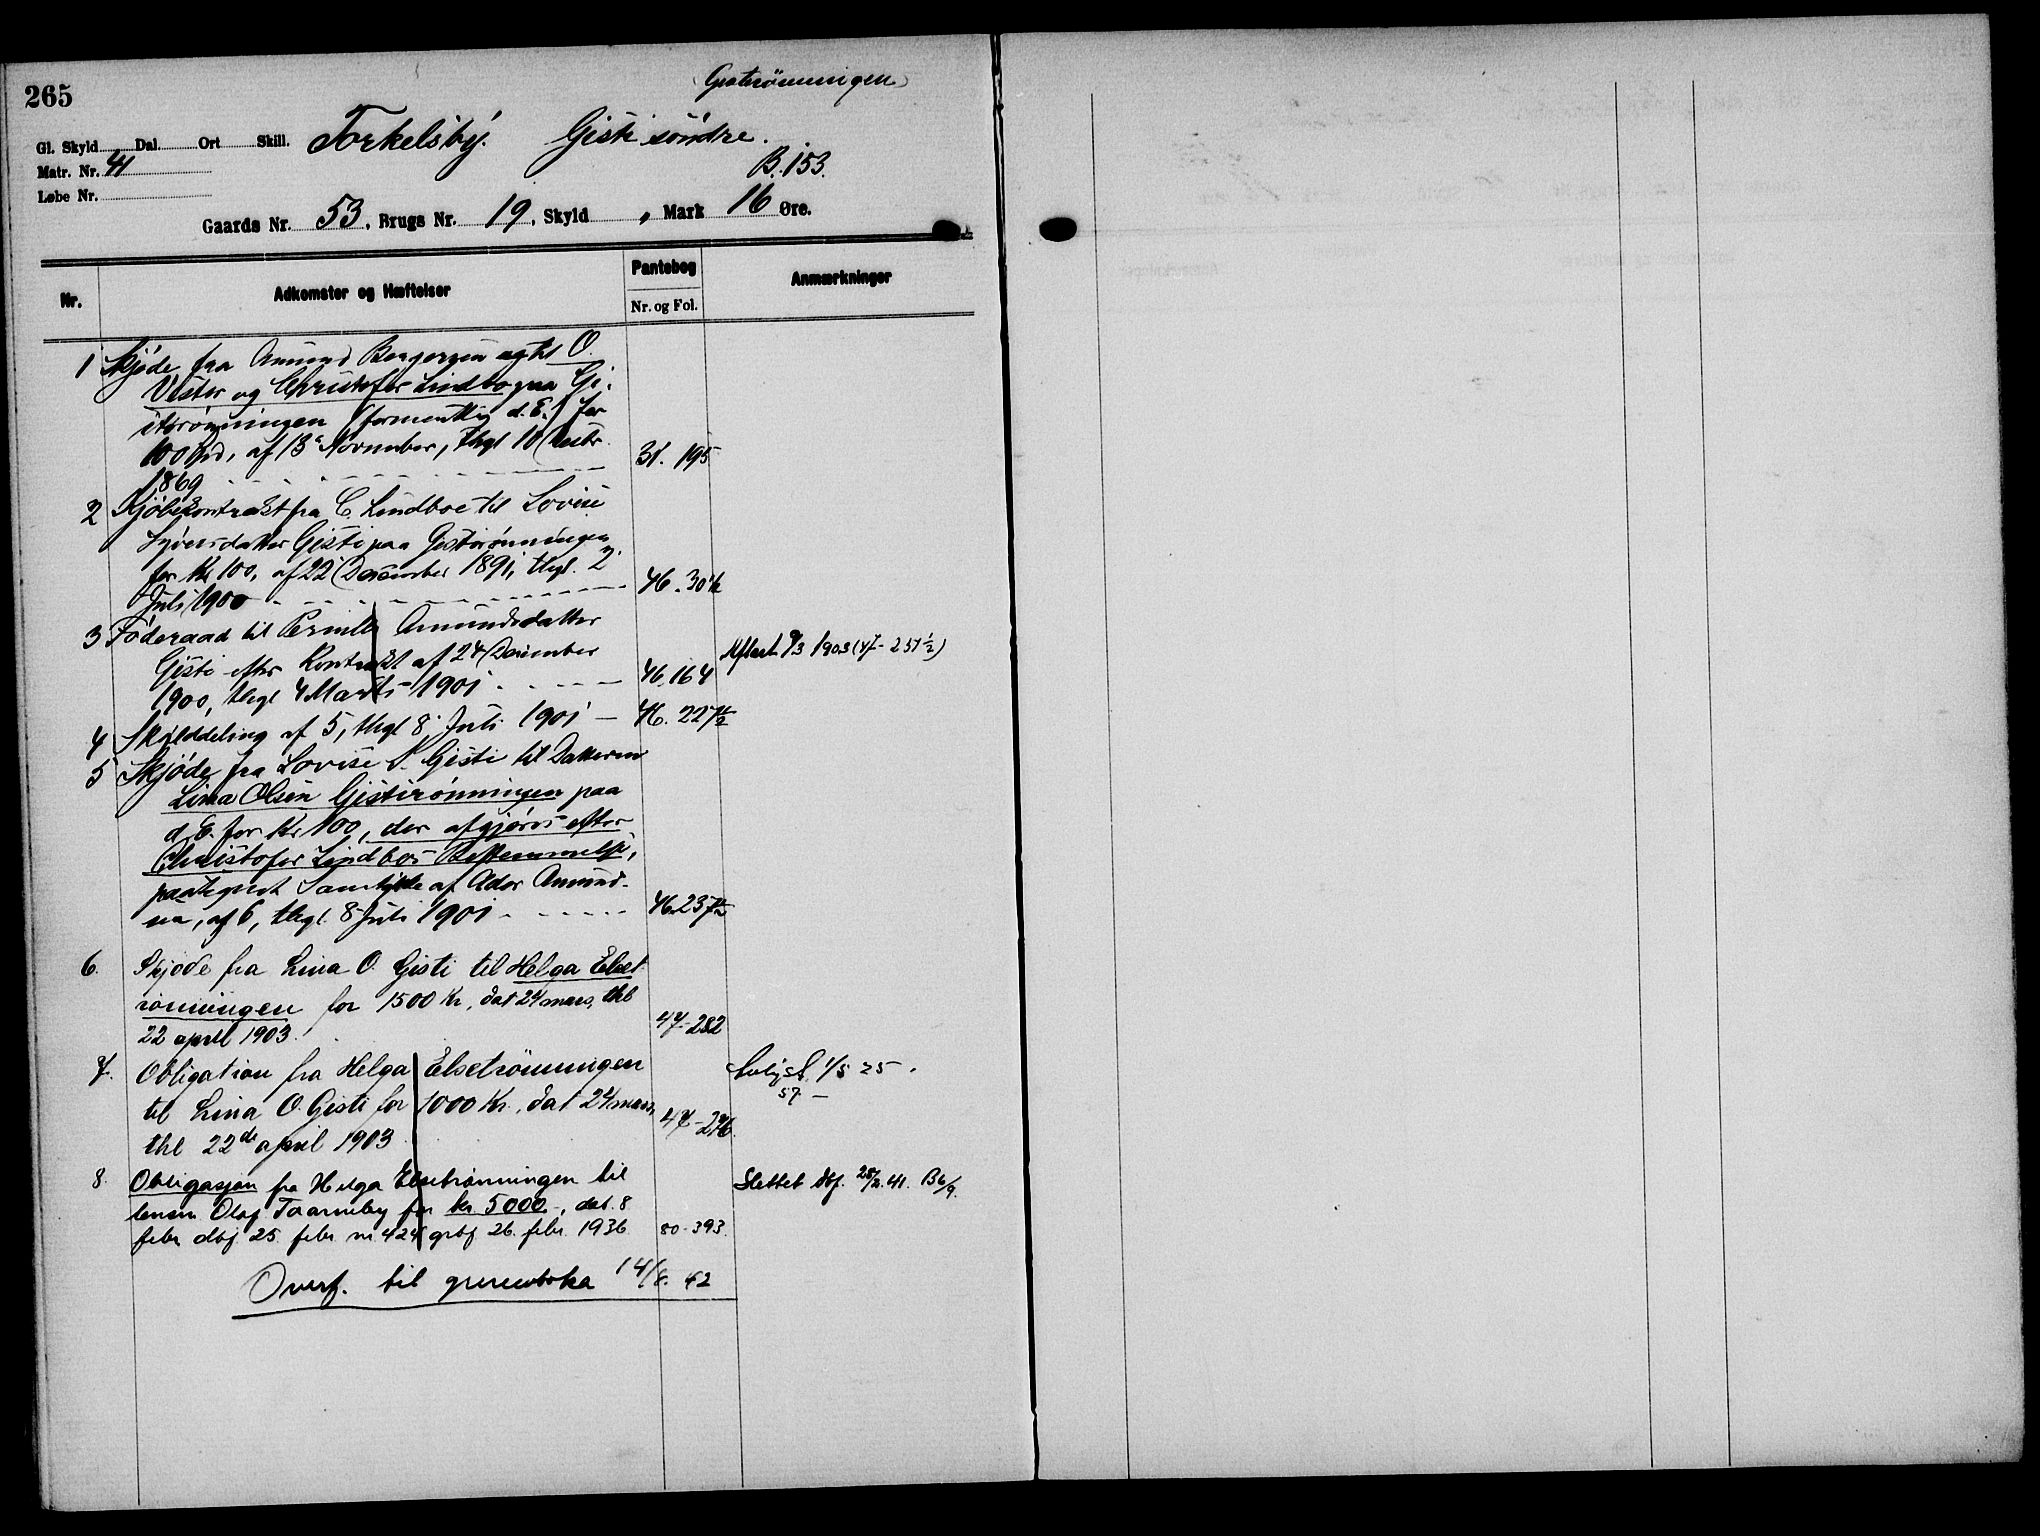 265
(Giströnningen)
Gl. Skyld Dal. Ort Skill. Torkelsby. Gisti söndre.
Matr. Nr. 41
B. 153.
Løbe Nr.
Gaards Nr. 53, Brugs Nr. 19, Skyld , Mark 16 Øre.
Nr. Adkomster og Hæftelser Pantebog Anmærkninger
Nr. og Fol.
1 Skjöde fra Amund Borgersen til O.
Vestor og Christofer Lindbo paa Gi-
strönningen (formentlig d. E.) for
100 Spd, af 13 November, thgl 10 Decbr. 31. 195
1869
2 Kjöbekontrakt fra C. Lindboe til Lovise
Syversdatter Gisti paa Gistirönningen
for Kr 100, af 22 December 1891, thgl. 2
Juli 1900 46. 30
3 Föderaad til Pernille Amundsdatter
Gisti efter Kontrakt af 24 December Aflæst 9/3 1903 (47-251½)
1900, thgl 4 Marts 1901 46. 164
4 Skylddeling af 5, thgl 8 Juli 1901 — 46. 227½
5 Skjöde fra Lovise S. Gisti til Datteren
Lina Olsen Gistirönningen paa
d. E. for Kr 100, der afgjöres efter
Christofer Lindboes Bestemmelse,
paategnet Samtykke af Ador Amund-
sen, af 6, thgl. 8 Juli 1901 46. 237½
6. Skjöde fra Lina O. Gisti til Helga Elset
rönningen for 1500 Kr, dat 24 mars, thl
22 april 1903. 47-282
7. Obligation fra Helga Elsetrönningen
til Lina O. Gisti for 1000 Kr., dat 24 mars, 47-276.
thl 22de april 1903
Avlyst 1/5 25.
57 —
8. Obligasjon fra Helga Elsetrönningen til Slettet dbf. 28/2. 41. B6/9.
lensm. Olaf Taarneby for kr. 5000.-, dat. 8
febr dbf 25. febr nr. 424 grbf 26. febr. 1936 80-393.
Overf. til grunnboka 14/8. 42